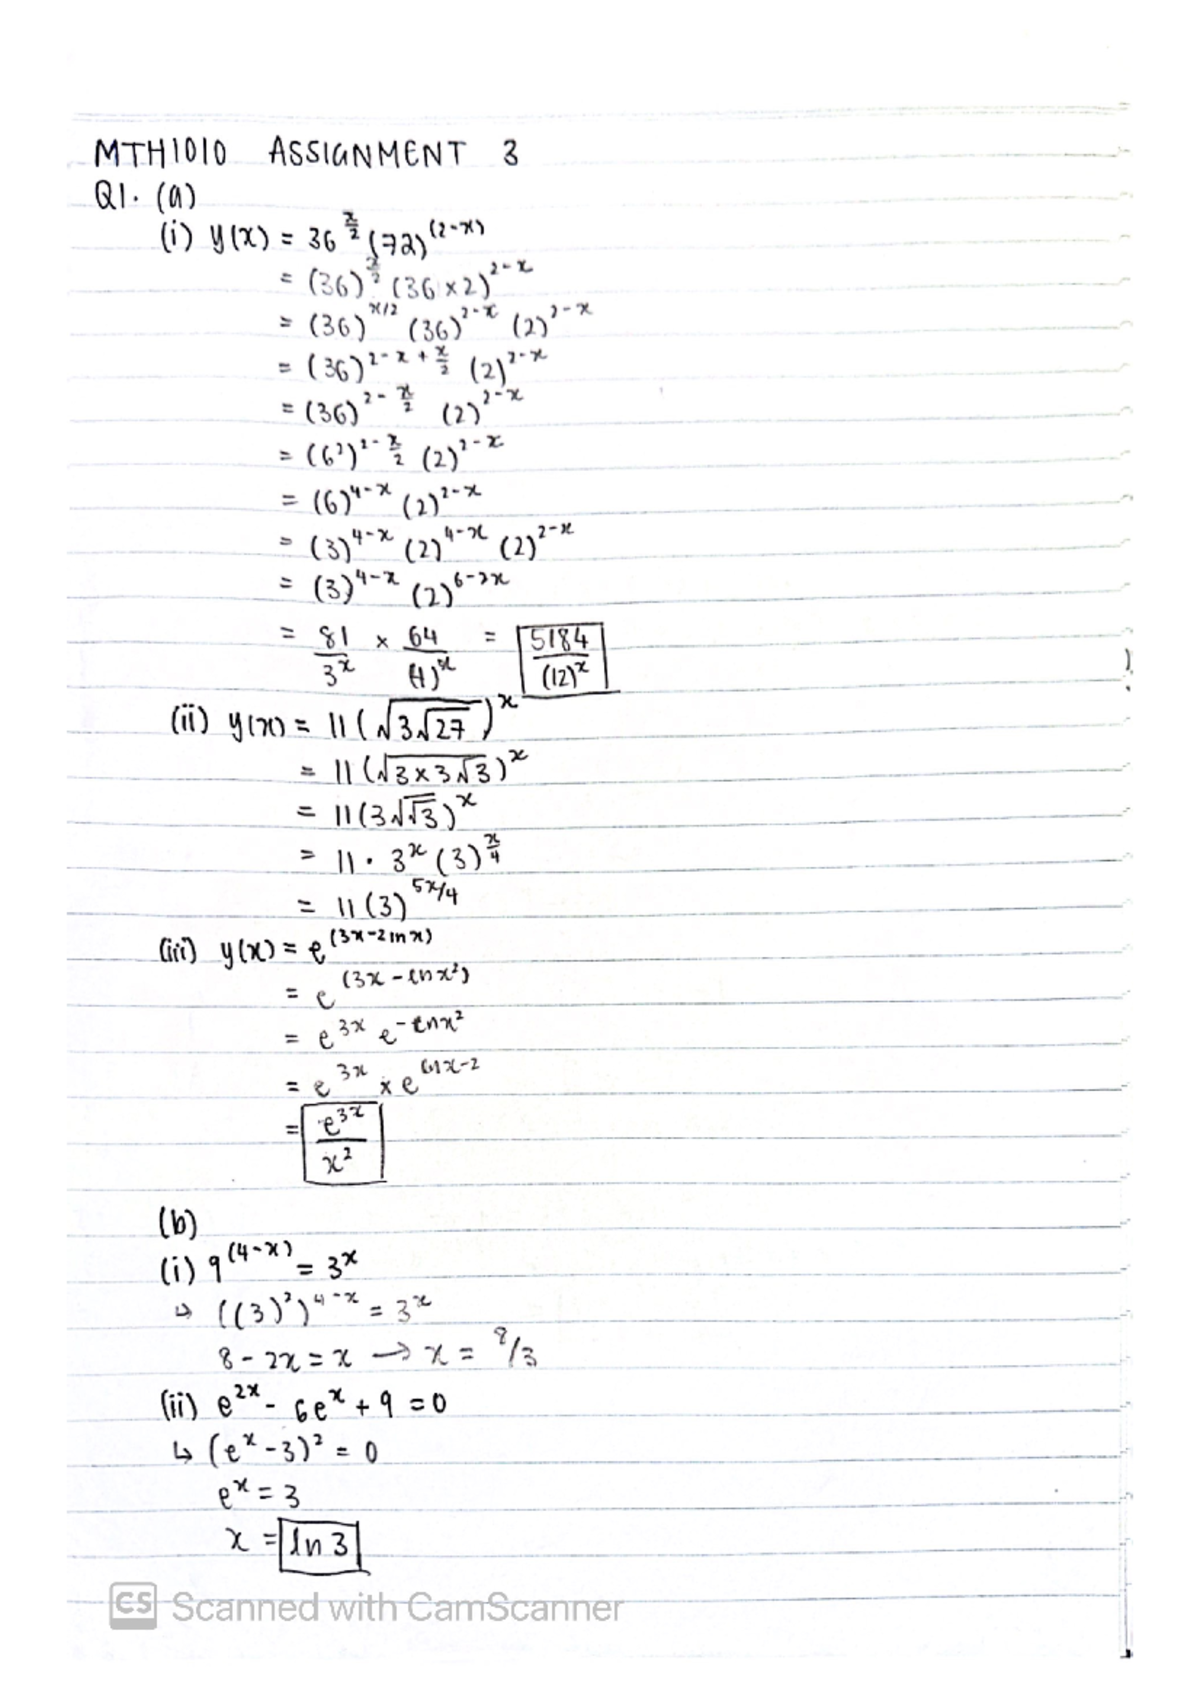 MTH1010 ASSIGNMENT 3
Q1. (a)
(i) y(x) = 36^(x/2) (72)^(2-x)
= (36)^(x/2) (36×2)^(2-x)
= (36)^(x/2) (36)^(2-x) (2)^(2-x)
= (36)^(2-x+x/2) (2)^(2-x)
= (36)^(2-x/2) (2)^(2-x)
= (6²)^(2-x/2) (2)^(2-x)
= (6)^(4-x) (2)^(2-x)
= (3)^(4-x) (2)^(4-x) (2)^(2-x)
= (3)^(4-x) (2)^(6-2x)
= 81/3^x × 64/(4)^x = 5184/(12)^x
(ii) y(x) = 11(√(3√27))^x
= 11(√(3×3√3))^x
= 11(3√√3)^x
= 11 · 3^x (3)^(x/4)
= 11(3)^(5x/4)
(iii) y(x) = e^(3x-2lnx)
= e^(3x-lnx²)
= e^(3x) e^(-lnx²)
= e^(3x) × e^(lnx-2)
= e^(3x)/x²
(b)
(i) 9^(4-x) = 3^x
↳ ((3)²)^(4-x) = 3^x
8-2x = x → x = 8/3
(ii) e^(2x) - 6e^x + 9 = 0
↳ (e^x-3)² = 0
e^x = 3
x = ln 3
CS Scanned with CamScanner